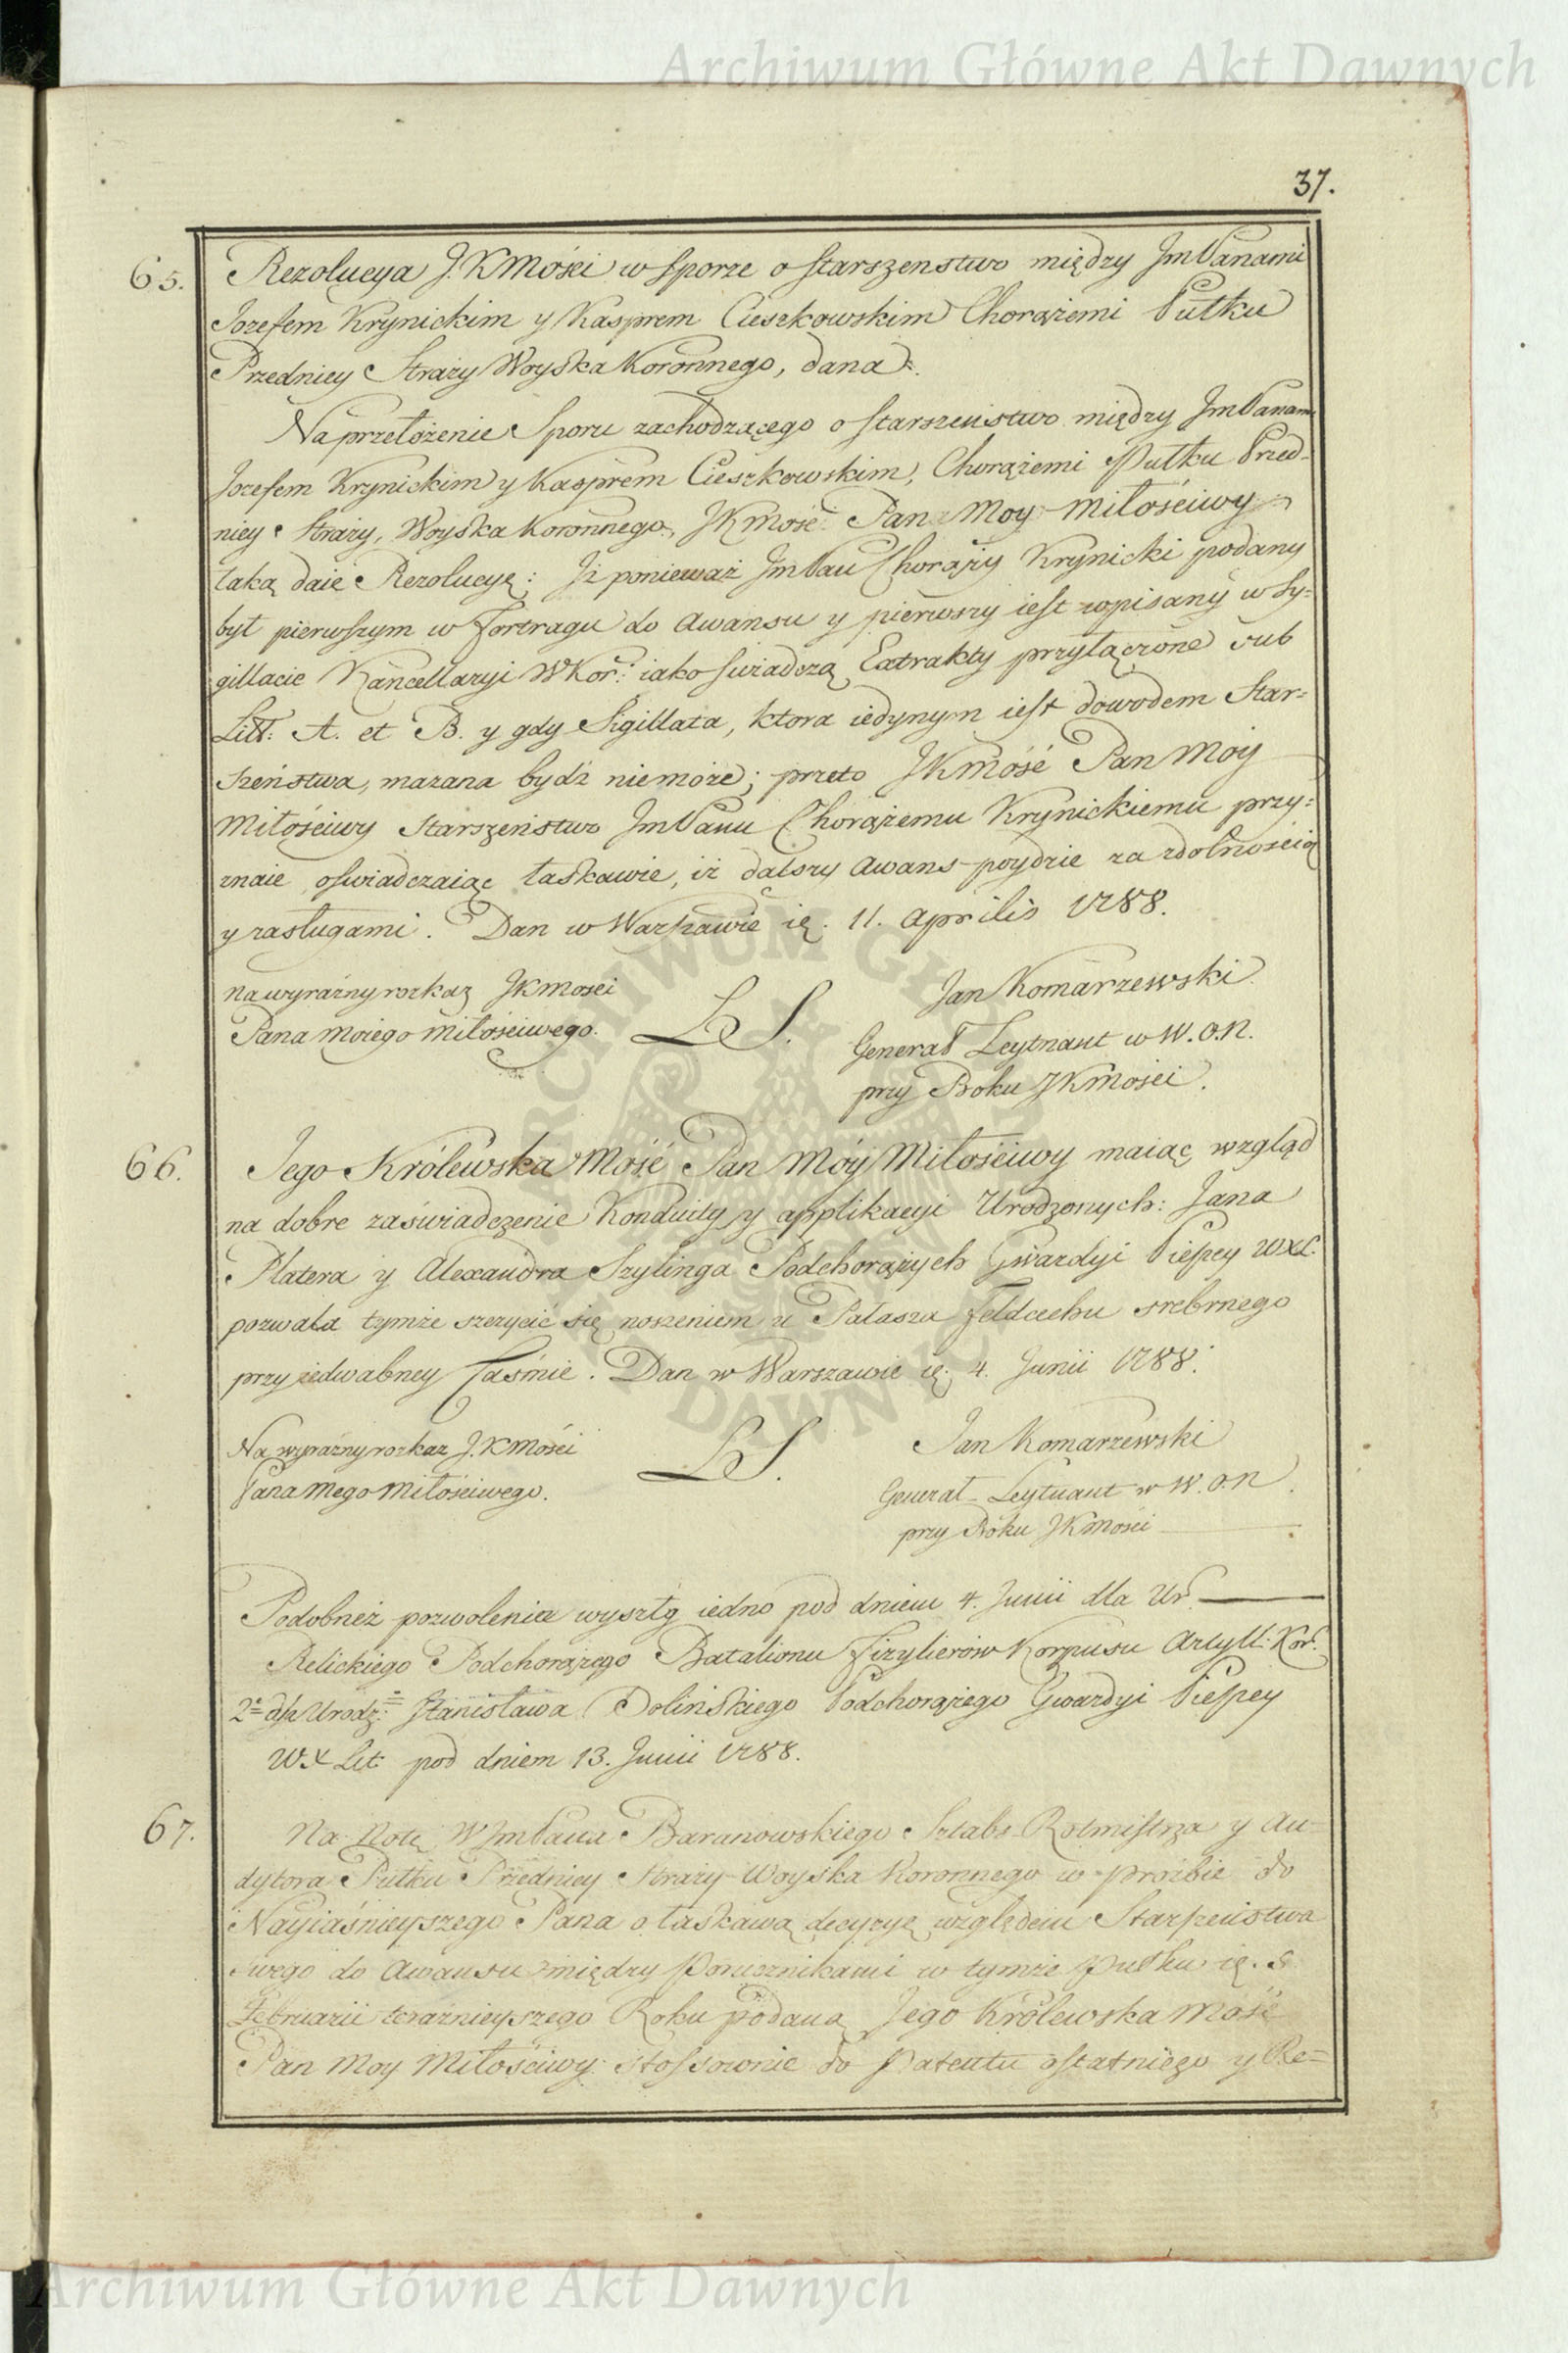 Archiwum Główne Akt Dawnych
37.
65. Rezolucya J.K Mości w sporze o starszenstwo między JmPanami
Jozefem Krynickim y Kasprem Cieszkowskim Chorążemi Pułku
Przedniey Straży Woyska Koronnego, dana.
Na przełożenie Sporu zachodzącego o starszeństwo między JmPanami
Jozefem Krynickim y Kasprem Cieszkowskim, Chorążemi Pułku Przed-
niey Straży, Woyska Koronnego, JKmość Pan Moy Miłościwy
taką daie Rezolucyę: Iż ponieważ JmPan Chorąży Krynicki podany
był pierwszym w Fortragu do Awansu y pierwszy iest wpisany w Sy-
gillacie Kancellaryi WKor: iako swiadczą Extrakty przyłączone sub
Litt. A. et B. y gdy Sigillata, ktora iedynym iest dowodem Star-
szeństwa, mazana bydź niemoże; przeto JKmość Pan Moy
Miłościwy Starszeństwo JmPanu Chorążemu Krynickiemu przy-
znaie oswiadczaiąc łaskawie, iż dalszy Awans poydzie za zdolnością
y zasługami. Dan w Warszawie ię. 11. Aprilis 1788.
Na wyraźny rozkaz JKmosci
Pana Moiego Miłościwego.
LS.
Jan Komarzewski
Generał Leytnant w W.O.N.
przy Boku JKmości.
66. Jego Królewska Mość Pan Móy Miłościwy maiąc wzgląd
na dobre zaświadczenie Konduity y applikacyi Urodzonych: Jana
Platera y Alexandra Szylinga Podchorążych Gwardyi Pieszey WXL.
pozwala tymże szczycić się noszeniem u Pałasza Feldcechu srebrnego
przy iedwabney Taśmie. Dan w Warszawie ię: 4. Junii 1788.
Na wyraźny rozkaz J.K Mości
Pana Mego Miłościwego.
LS.
Jan Komarzewski
Generał Leytnant w W.O.N.
przy Boku JKmości
Podobneż pozwolenia wyszły iedno pod dniem 4. Junii dla Ur.
Relickiego Podchorążego Batalionu Fizylierów Korpusu Artyll: Kor.
2e dla Urodz: Stanisława Dolińskiego Podchorążego Gwardyi Pieszey
W.X Lit: pod dniem 13. Junii 1788.
67. Na Notę WJmPana Baranowskiego Sztabs-Rotmistrza y Au-
dytora Pułku Przedniey Straży Woyska Koronnego w proźbie do
Nayiaśnieyszego Pana o łaskawą decyzyę względem Starszeństwa
swego do Awansu między Porucznikami w tymże Pułku ię. 8
Februarii teraźnieyszego Roku podaną Jego Królewska Mość
Pan Moy Miłościwy stossownie do Patentu ostatniego y Re-
Archiwum Główne Akt Dawnych